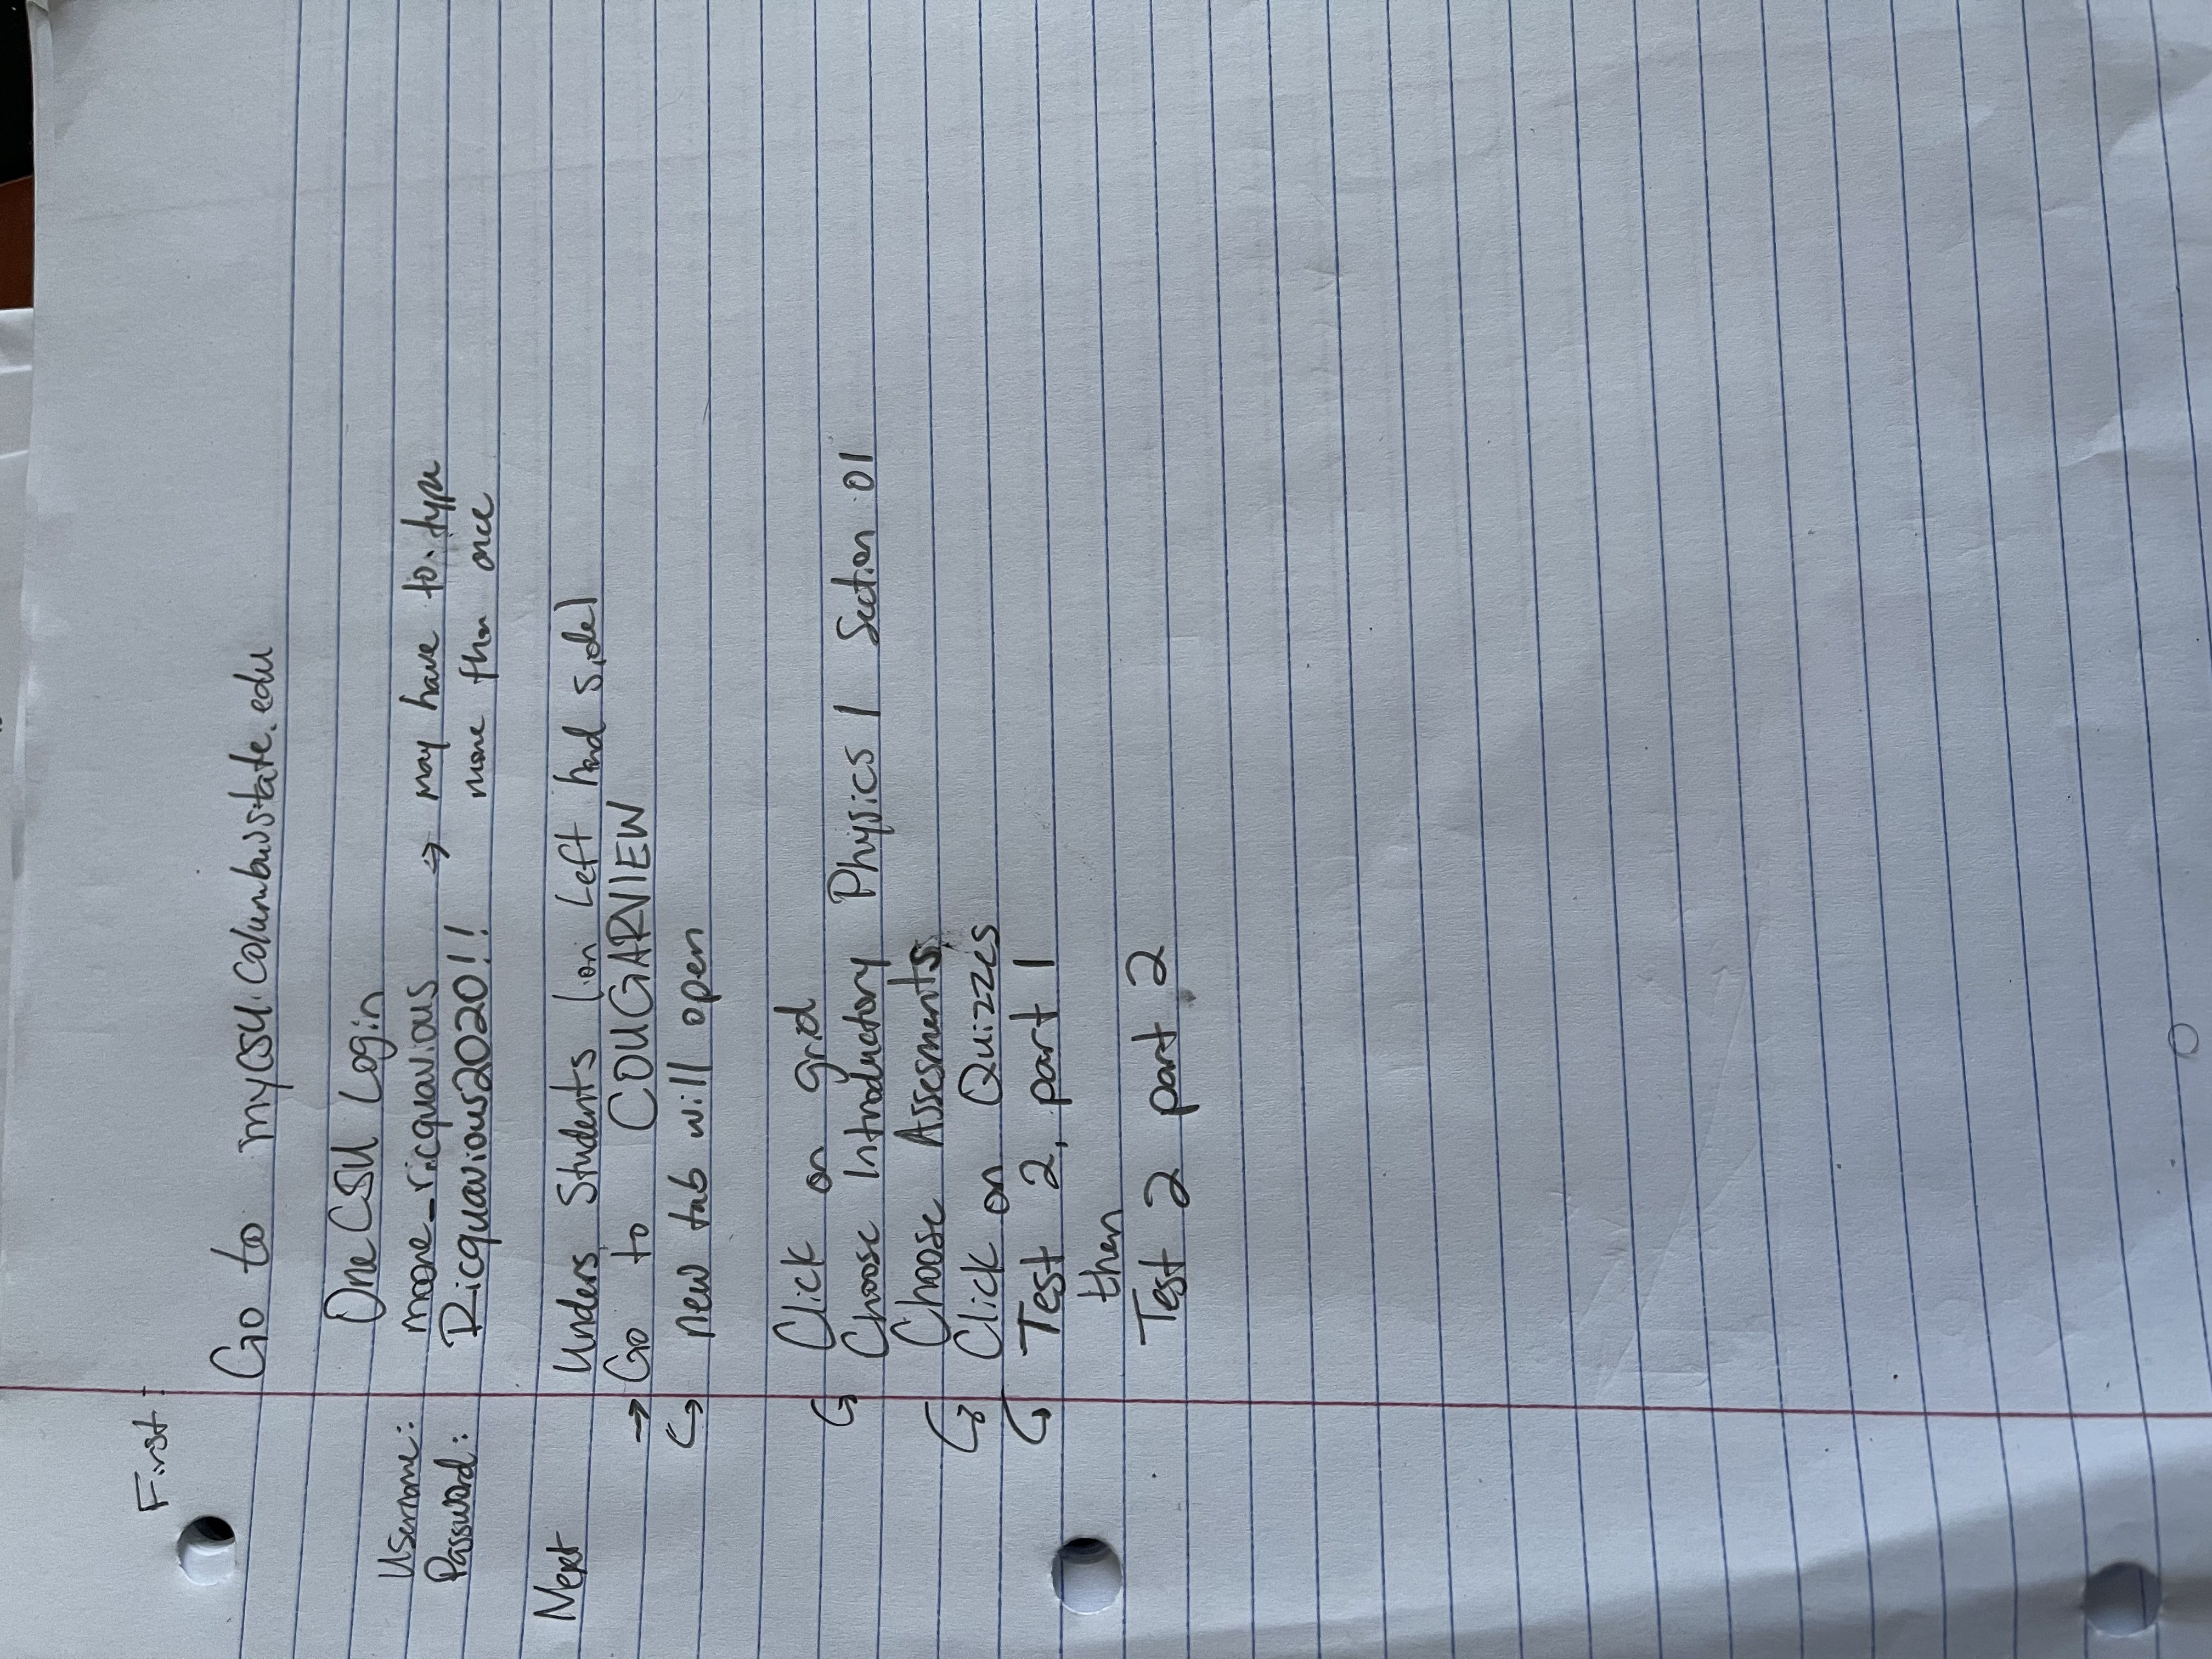 First:
Go to mycsu.columbusstate.edu
OneCSU Login
Username: moore_ricquavious → may have to type
Password: Ricquavious2020!! more than once
Next Unders Students (on Left hand side)
→ Go to COUGARVIEW
↪ new tab will open
↪ Click on grid
Choose Introductory Physics 1 Section 01
Choose Assessments
↪ Click on Quizzes
↪ Test 2, part 1
then
Test 2 part 2